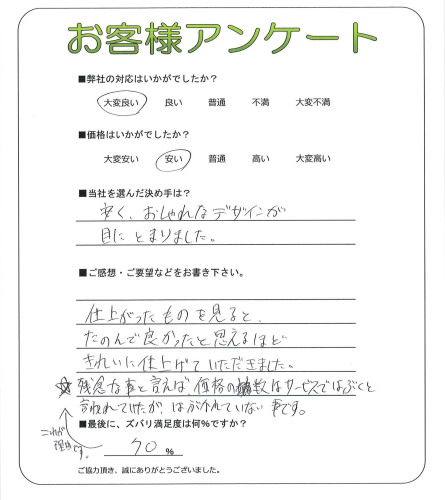 お客様アンケート
■弊社の対応はいかがでしたか?
大変良い 良い 普通 不満 大変不満
■価格はいかがでしたか?
大変安い 安い 普通 高い 大変高い
■当社を選んだ決め手は?
安く、おしゃれなデザインが
目にとまりました。
■ご感想・ご要望などをお書き下さい。
仕上がったものを見ると、
たのんで良かったと思えるほど
きれいに仕上げていただきました。
☆残念な事と言えば、価格の端数はサービスではぶくと
言われていたが、はぶかれていない事です。
■最後に、ズバリ満足度は何%ですか?
これが
理由です。
70 %
ご協力頂き、誠にありがとうございました。